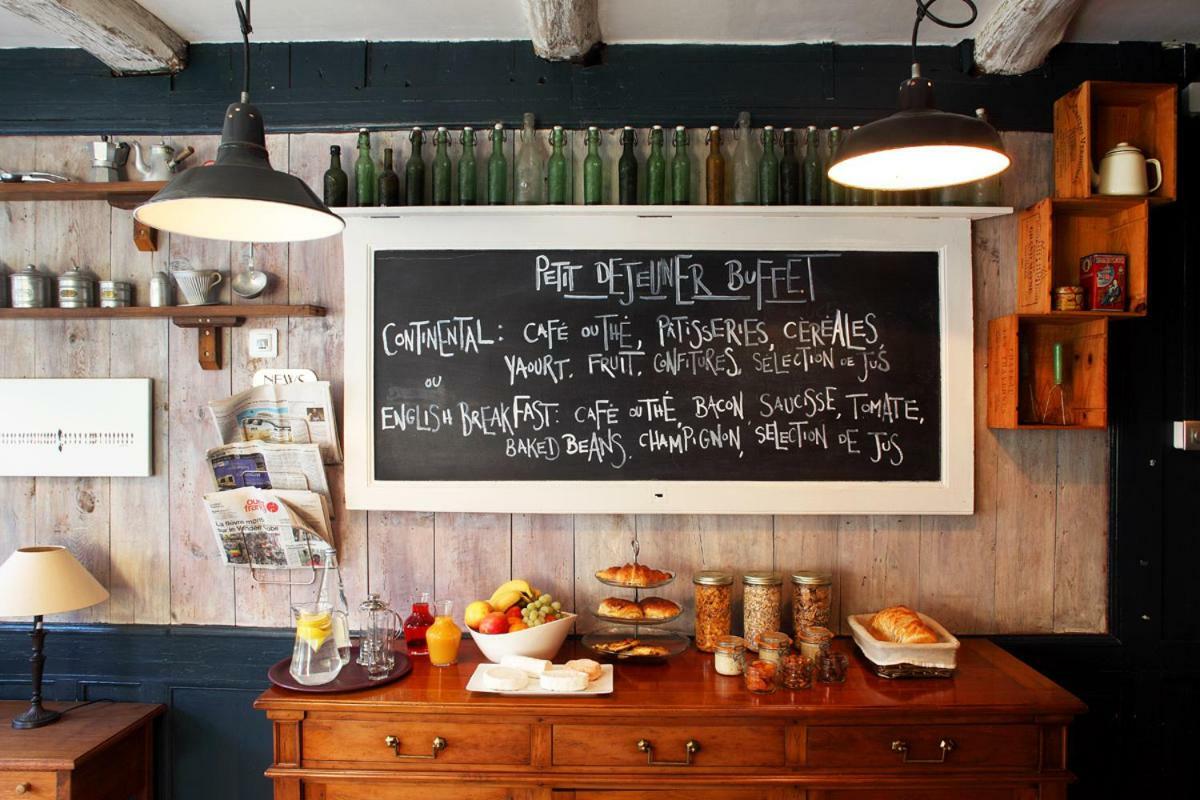 PETIT DEJEUNER BUFFET
CONTINENTAL: CAFÉ OU THÉ, PATISSERIES, CÈRÉALES,
YAOURT, FRUIT, CONFITURES, SÉLECTION DE JUS
OU
ENGLISH BREAKFAST: CAFÉ OU THÉ, BACON SAUCISSE, TOMATE,
BAKED BEANS, CHAMPIGNON, SELECTION DE JUS
NEWS